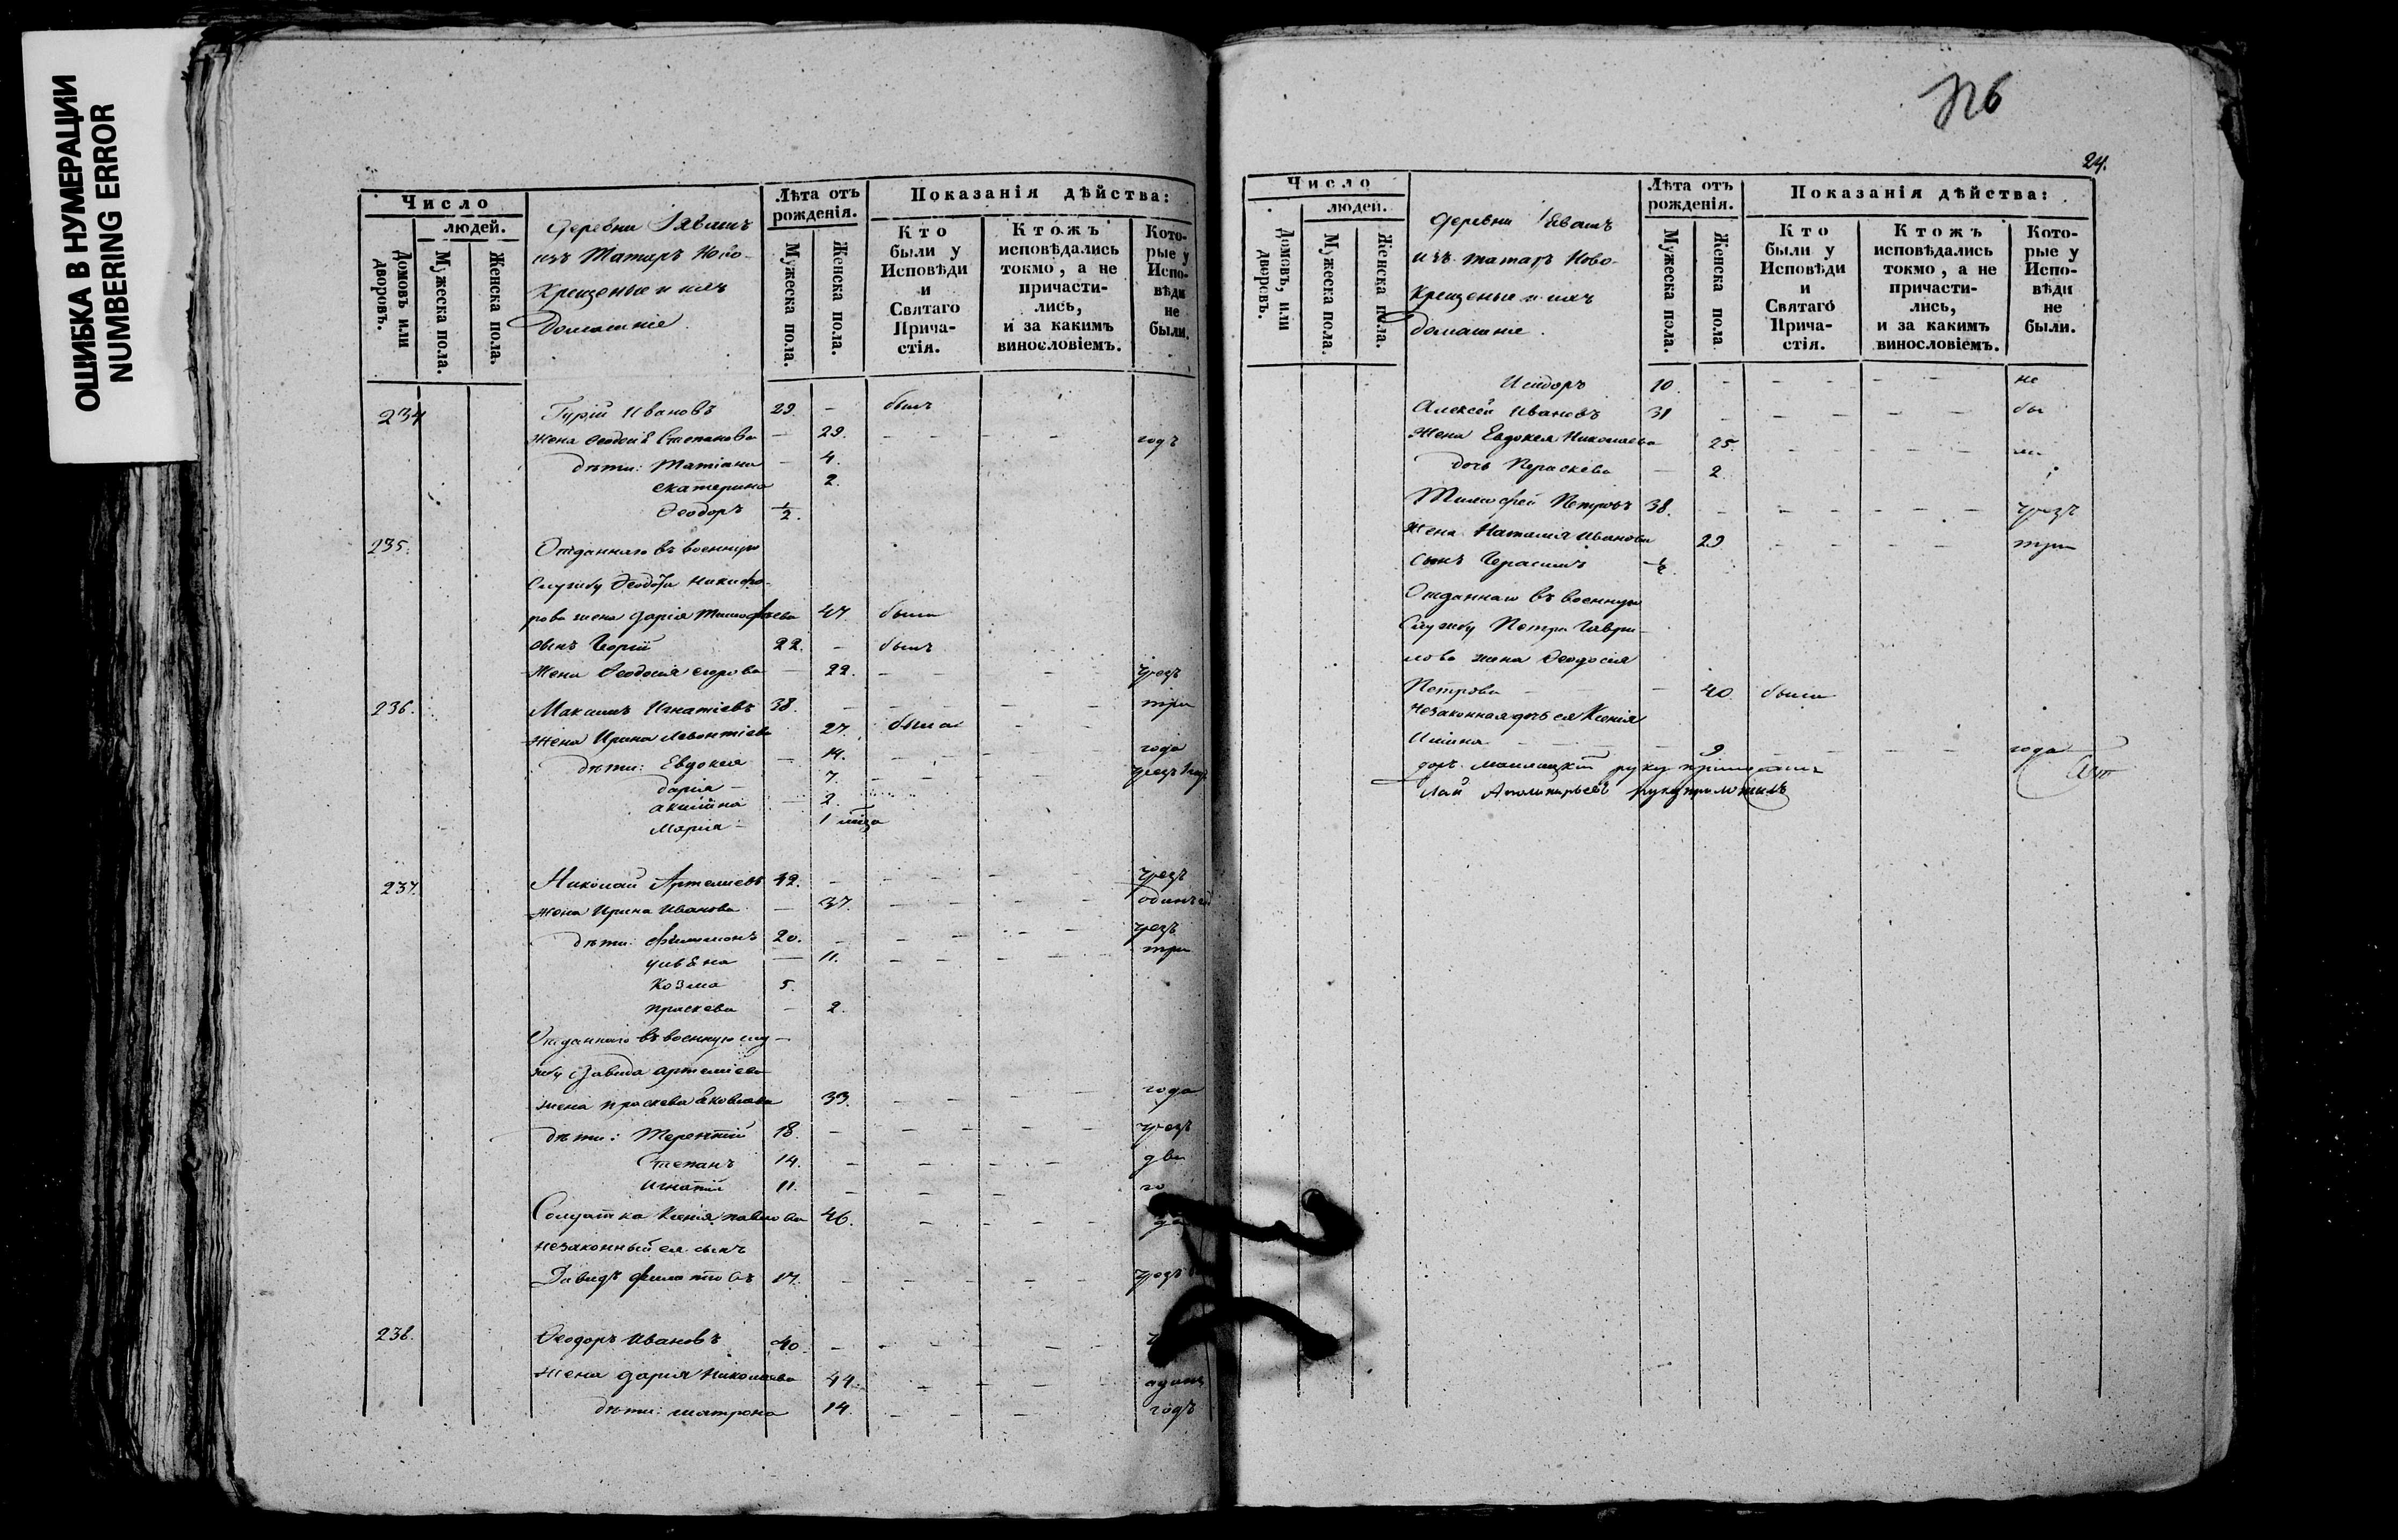 ОШИБКА В НУМЕРАЦИИ
NUMBERING ERROR
Число
людей.
Домовъ или дворовъ.
Мужеска пола.
Женска пола.
деревни
изъ Татаръ Ново-
крещеные и ихъ
домашніе.
Лѣта отъ рожденія.
Мужеска пола.
Женска пола.
Показанія дѣйства:
Кто были у Исповѣди и Святаго Прича-стія.
Ктожъ исповѣдались токмо, а не причасти-лись, и за какимъ винословіемъ.
Кото-рые у Испо-вѣди не были.
234 Гурій Ивановъ 29. – былъ
жена Ѳеодосія Степанова – 29. – – – – годъ
дѣти: Татіана – 4.
Екатерина 2.
Ѳеодоръ ½.
235. Отданнаго въ военную
службу Ѳедота Никифо-
рова жена Дарія Тимофѣева 47. была
сынъ 22. – былъ
жена Ѳеодосія Егорова – 22. – – – чрезъ
236. Максимъ Игнатіевъ 38. – – – три
жена Ирина Леонтіева 27. была – –
дѣти: Евдокея – 14. – – – года
Дарія – 7. – – – чрезъ
Акилина – 2.
Марія – 1
237. Николай Артемиевъ 42. – – – – чрезъ
жена Ирина Иванова – 37. – – – – одинъ
дѣти: Филимонъ 20. – – – – чрезъ
Уліяна – 11. – – – – три
Козма 5.
Праскева – 2.
Отданнаго въ военную слу-
жбу Давида Артемиева
жена Праскева Яковлева 33. – – – – года
дѣти: Терентій 18. – – – – чрезъ
Степанъ 14. – – – – два
Игнатій 11. – – – го
Солдатка Ксенія Павлова 46. – – – –
незаконный ея сынъ
Давидъ Филатовъ 17. – – – – чрезъ
238. Ѳеодоръ Ивановъ 40. – – – – –
жена Дарія Николаева 44. – – – – одинъ
дѣти: Матрона 14. – – – годъ
24.
Число
людей.
Домовъ, или дворовъ.
Мужеска пола.
Женска пола.
деревни
изъ татаръ Ново-
крещеные и ихъ
домашніе.
Лѣта отъ рожденія.
Мужеска пола.
Женска пола
Показанія дѣйства:
Кто были у Исповѣди и Святаго Прича-стія.
Ктожъ исповѣдались токмо, а не причасти-лись, и за какимъ винословіемъ.
Кото-рые у Испо-вѣди не были.
Исидоръ 10. – – – – – не
Алексѣй Ивановъ 31 – – – – – бы
жена Евдокея Николаева 25. – – – – ли
дочь Параскева – 2.
Тимофей Петровъ 38. – – – – – чрезъ
жена Наталия Иванова 29 – – – – три
сынъ Герасимъ ½.
Отданнаго въ военную
службу Петра Гаври-
лова жена Ѳеодосія
Петрова – – 40. была
незаконная дочь ея Ксенія
– 9. – – – – года
руку приложилъ
руку приложилъ